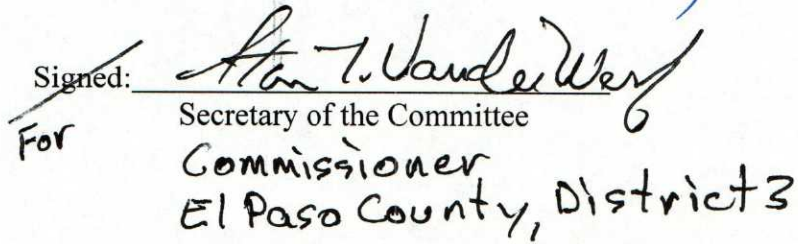 Signed: Stan T. VanderWerf
For
Secretary of the Committee
Commissioner
El Paso County, District 3